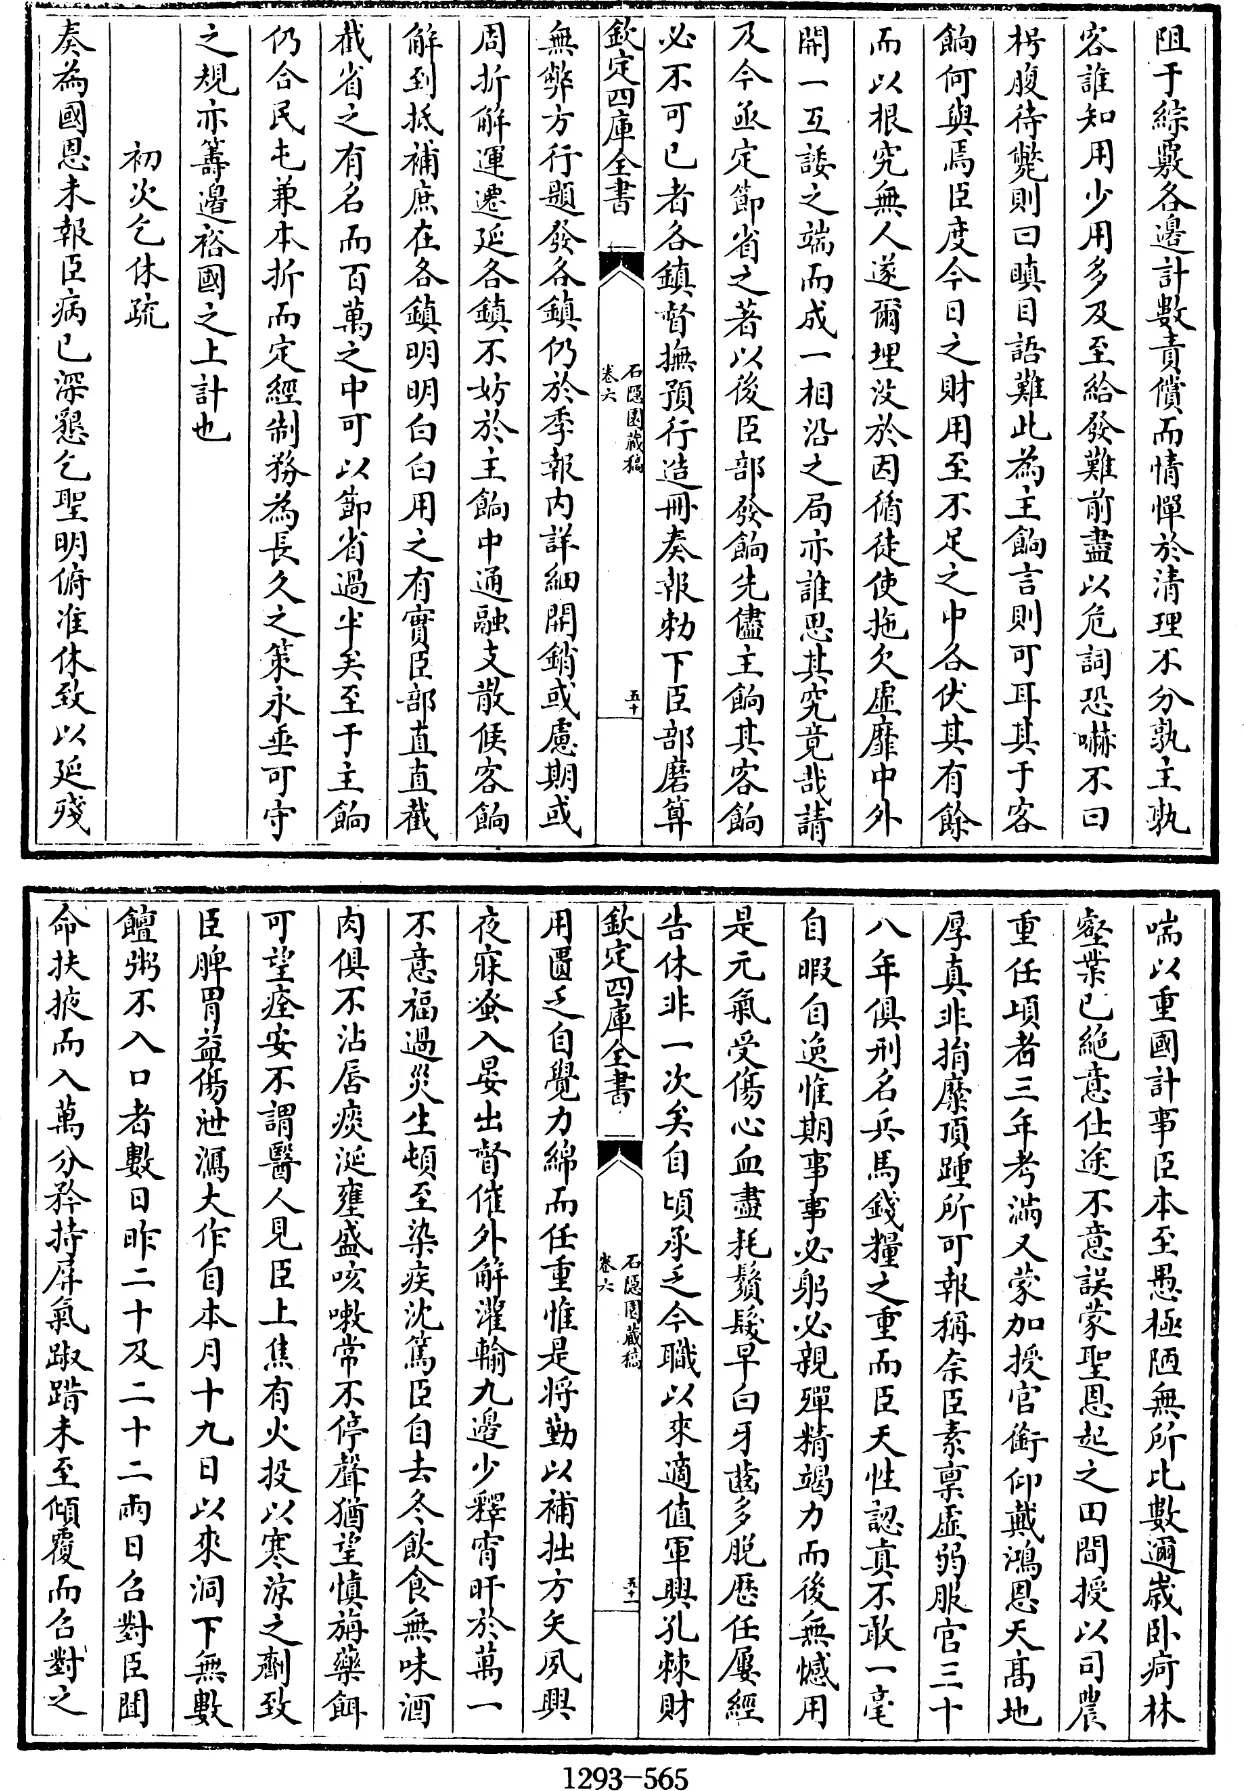 阻于綜覈各邊計數責償而情憚於清理不分孰主孰
客誰知用少用多及至給發難前盡以危詞恐嚇不曰
枵腹待斃則曰瞋目語難此為主餉言則可耳其于客
餉何與焉臣度今日之財用至不足之中各伏其有餘
而以根究無人遂爾埋没於因循徒使拖欠虛靡中外
開一互諉之端而成一相沿之局亦誰思其究竟哉請
及今亟定節省之著以後臣部發餉先儘主餉其客餉
必不可已者各鎮督撫預行造冊奏報勅下臣部磨算
欽定四庫全書
石隱園藏稿
卷六
五十
無弊方行題發各鎮仍於季報内詳細開銷或慮期或
周折解運遷延各鎮不妨於主餉中通融支散候客餉
解到抵補庶在各鎮明明白白用之有實臣部直直截
截省之有名而百萬之中可以節省過半矣至于主餉
仍合民屯兼本折而定經制務為長久之策永垂可守
之規亦籌邊裕國之上計也
初次乞休疏
奏為國恩未報臣病已深懇乞聖明俯准休致以延殘
喘以重國計事臣本至愚極陋無所比數邇歲卧疴林
壑業已絶意仕途不意誤蒙聖恩起之田間授以司農
重任頃者三年考滿又蒙加授官銜仰戴鴻恩天髙地
厚真非捐糜頂踵所可報稱奈臣素禀虛弱服官三十
八年俱刑名兵馬錢糧之重而臣天性認真不敢一毫
自暇自逸惟期事事必躬必親殫精竭力而後無憾用
是元氣受傷心血盡耗鬚髮早白牙齒多脱歷任屢經
告休非一次矣自頃承乏今職以來適值軍興孔棘財
欽定四庫全書
石隱園藏稿
卷六
五十一
用匱乏自覺力綿而任重惟是將勤以補拙方矢夙興
夜寐蚤入晏出督催外解灌輸九邊少釋宵旰於萬一
不意福過災生頓至染疾沈篤臣自去冬飲食無味酒
肉俱不沾唇痰涎壅盛咳嗽常不停聲猶望慎旃藥餌
可望痊安不謂醫人見臣上焦有火投以寒凉之劑致
臣脾胃益傷泄瀉大作自本月十九日以來洞下無數
饘粥不入口者數日昨二十及二十二兩日召對臣闔
命扶掖而入萬分矜持屏氣踧踖未至傾覆而召對之
1293-565